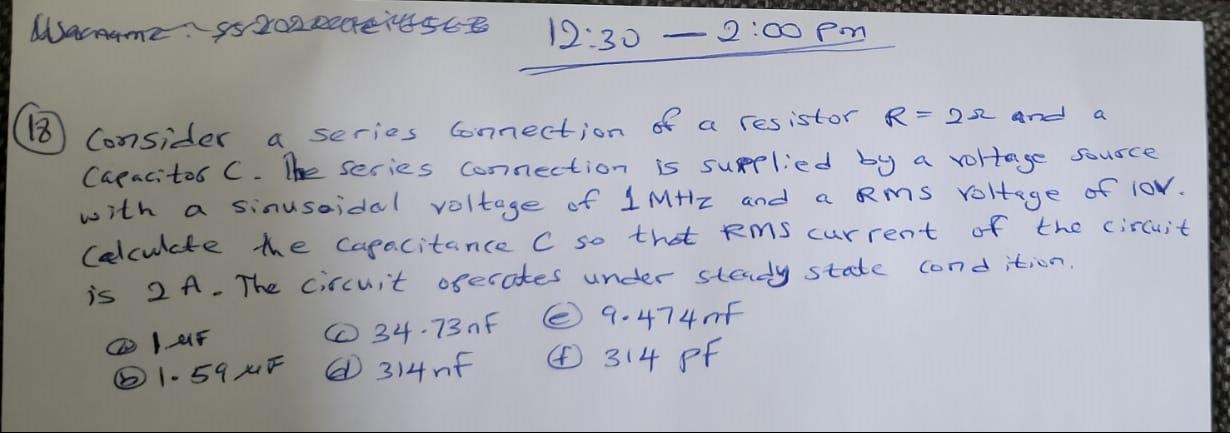 12:30 — 2:00 Pm
18 Consider a series Connection of a resistor R = 2Ω and a
Capacitor C. The series connection is supplied by a voltage source
with a sinusoidal voltage of 1 MHz and a RMS voltage of 10V.
Calculate the capacitance C so that RMS current of the circuit
is 2 A. The circuit operates under steady state condition.
ⓐ 1 μF ⓒ 34.73nF ⓔ 9.474nF
ⓑ 1.59 μF ⓓ 314nf ⓕ 314 pf